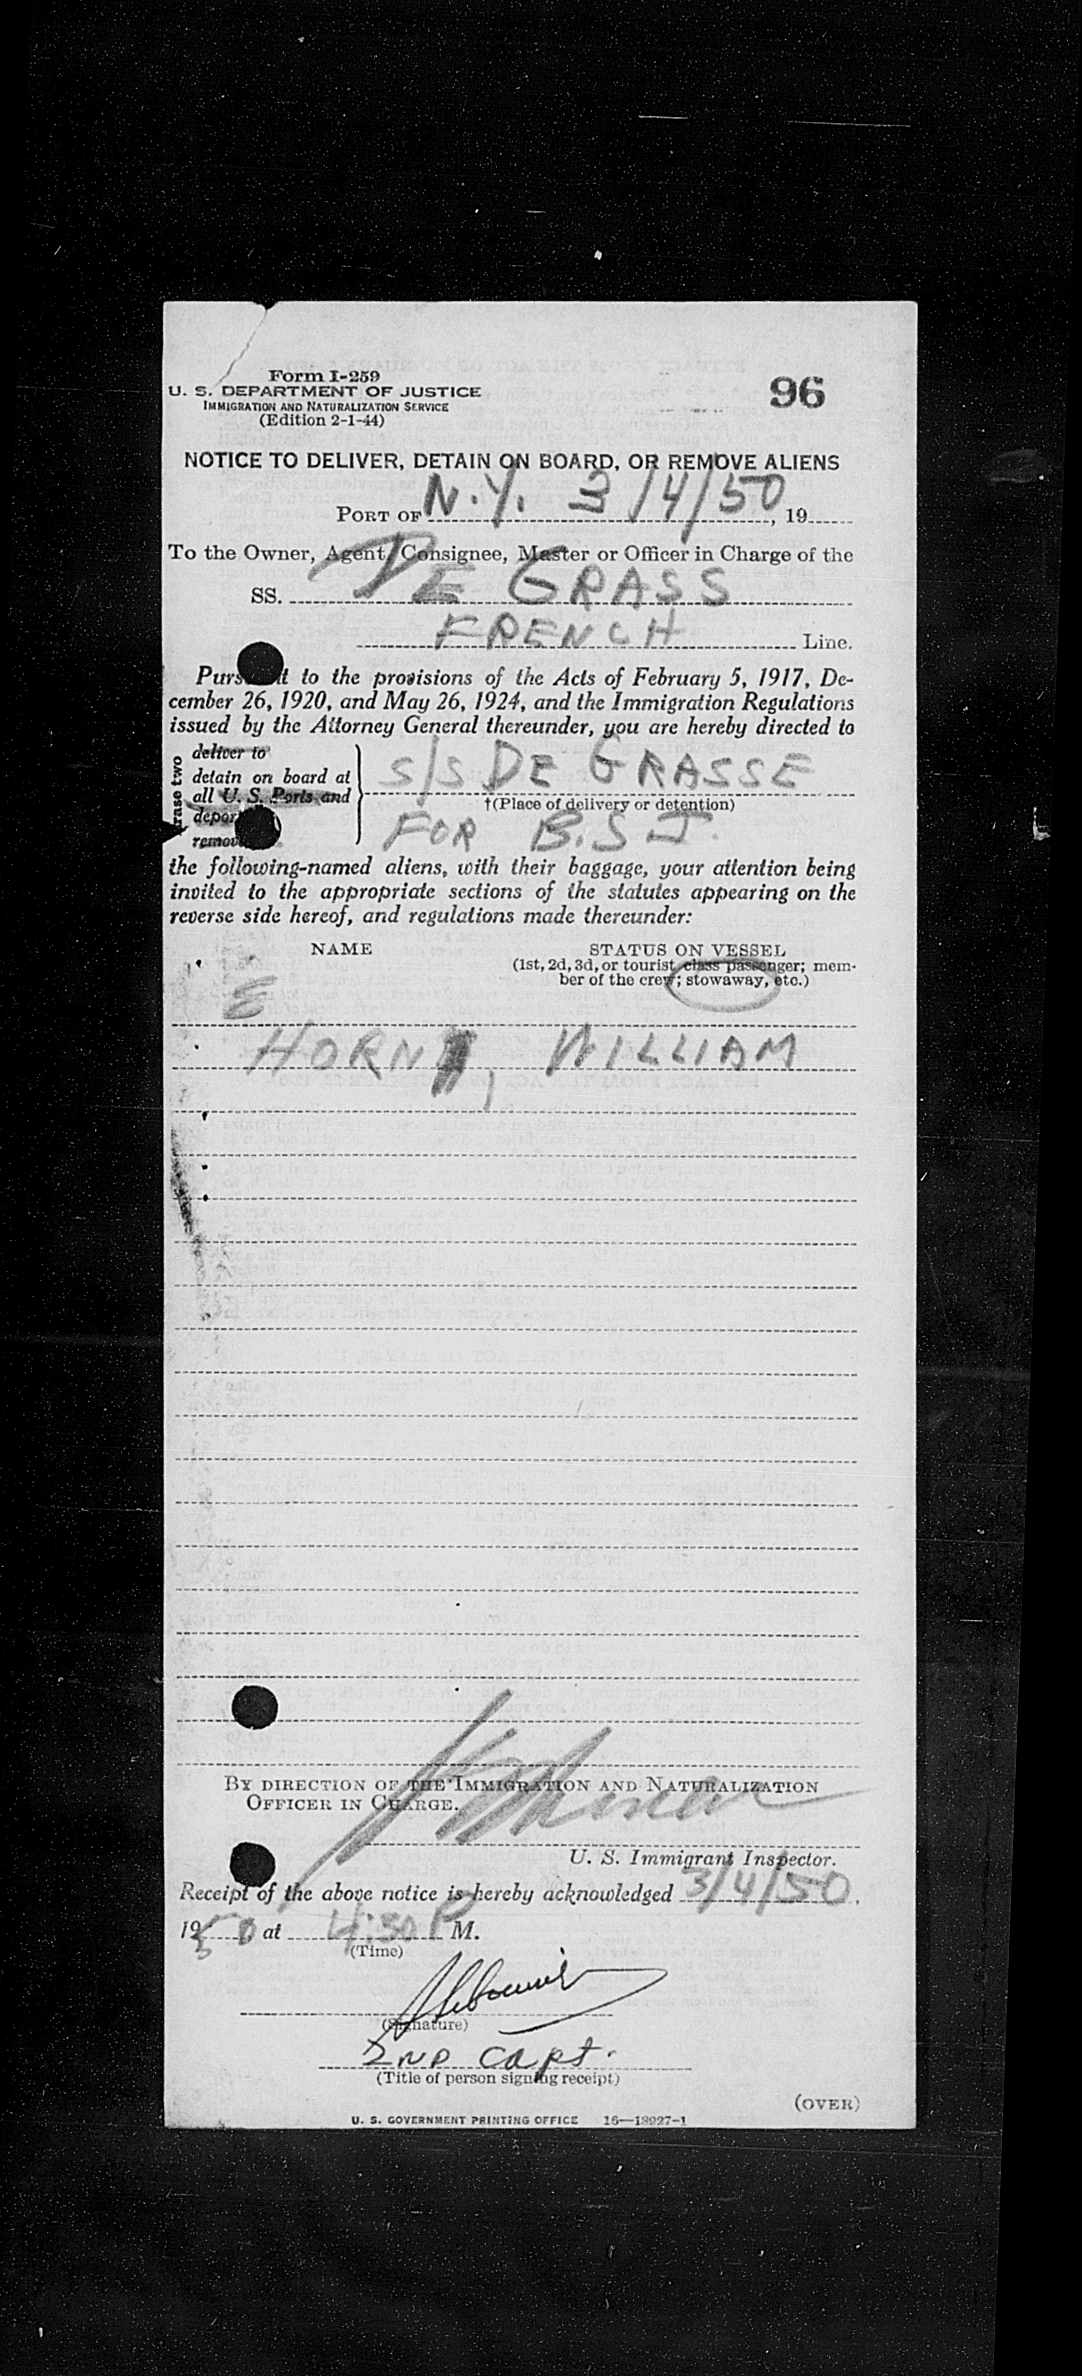 Form I-259
U. S. DEPARTMENT OF JUSTICE
IMMIGRATION AND NATURALIZATION SERVICE
(Edition 2-1-44)
96
NOTICE TO DELIVER, DETAIN ON BOARD, OR REMOVE ALIENS
PORT OF N.Y. 3/4/50, 19
To the Owner, Agent, Consignee, Master or Officer in Charge of the
SS. DE GRASS
FRENCH Line.
to the provisions of the Acts of February 5, 1917, De-
cember 26, 1920, and May 26, 1924, and the Immigration Regulations
issued by the Attorney General thereunder, you are hereby directed to
deliver to
detain on board at
all U. S. Ports and
two
S/S DE GRASSE
†(Place of delivery or detention)
FOR B.S.I.
the following-named aliens, with their baggage, your attention being
invited to the appropriate sections of the statutes appearing on the
reverse side hereof, and regulations made thereunder:
NAME
STATUS ON VESSEL
(1st, 2d, 3d, or tourist class passenger; mem-
ber of the crew; stowaway, etc.)
WILLIAM
BY DIRECTION OF THE IMMIGRATION AND NATURALIZATION
OFFICER IN CHARGE.
U. S. Immigrant Inspector.
Receipt of the above notice is hereby acknowledged 3/4/50,
1950 at 4:30 P M.
(Time)
(Signature)
2ND CAPT.
(Title of person signing receipt)
(OVER)
U. S. GOVERNMENT PRINTING OFFICE 16—18927-1